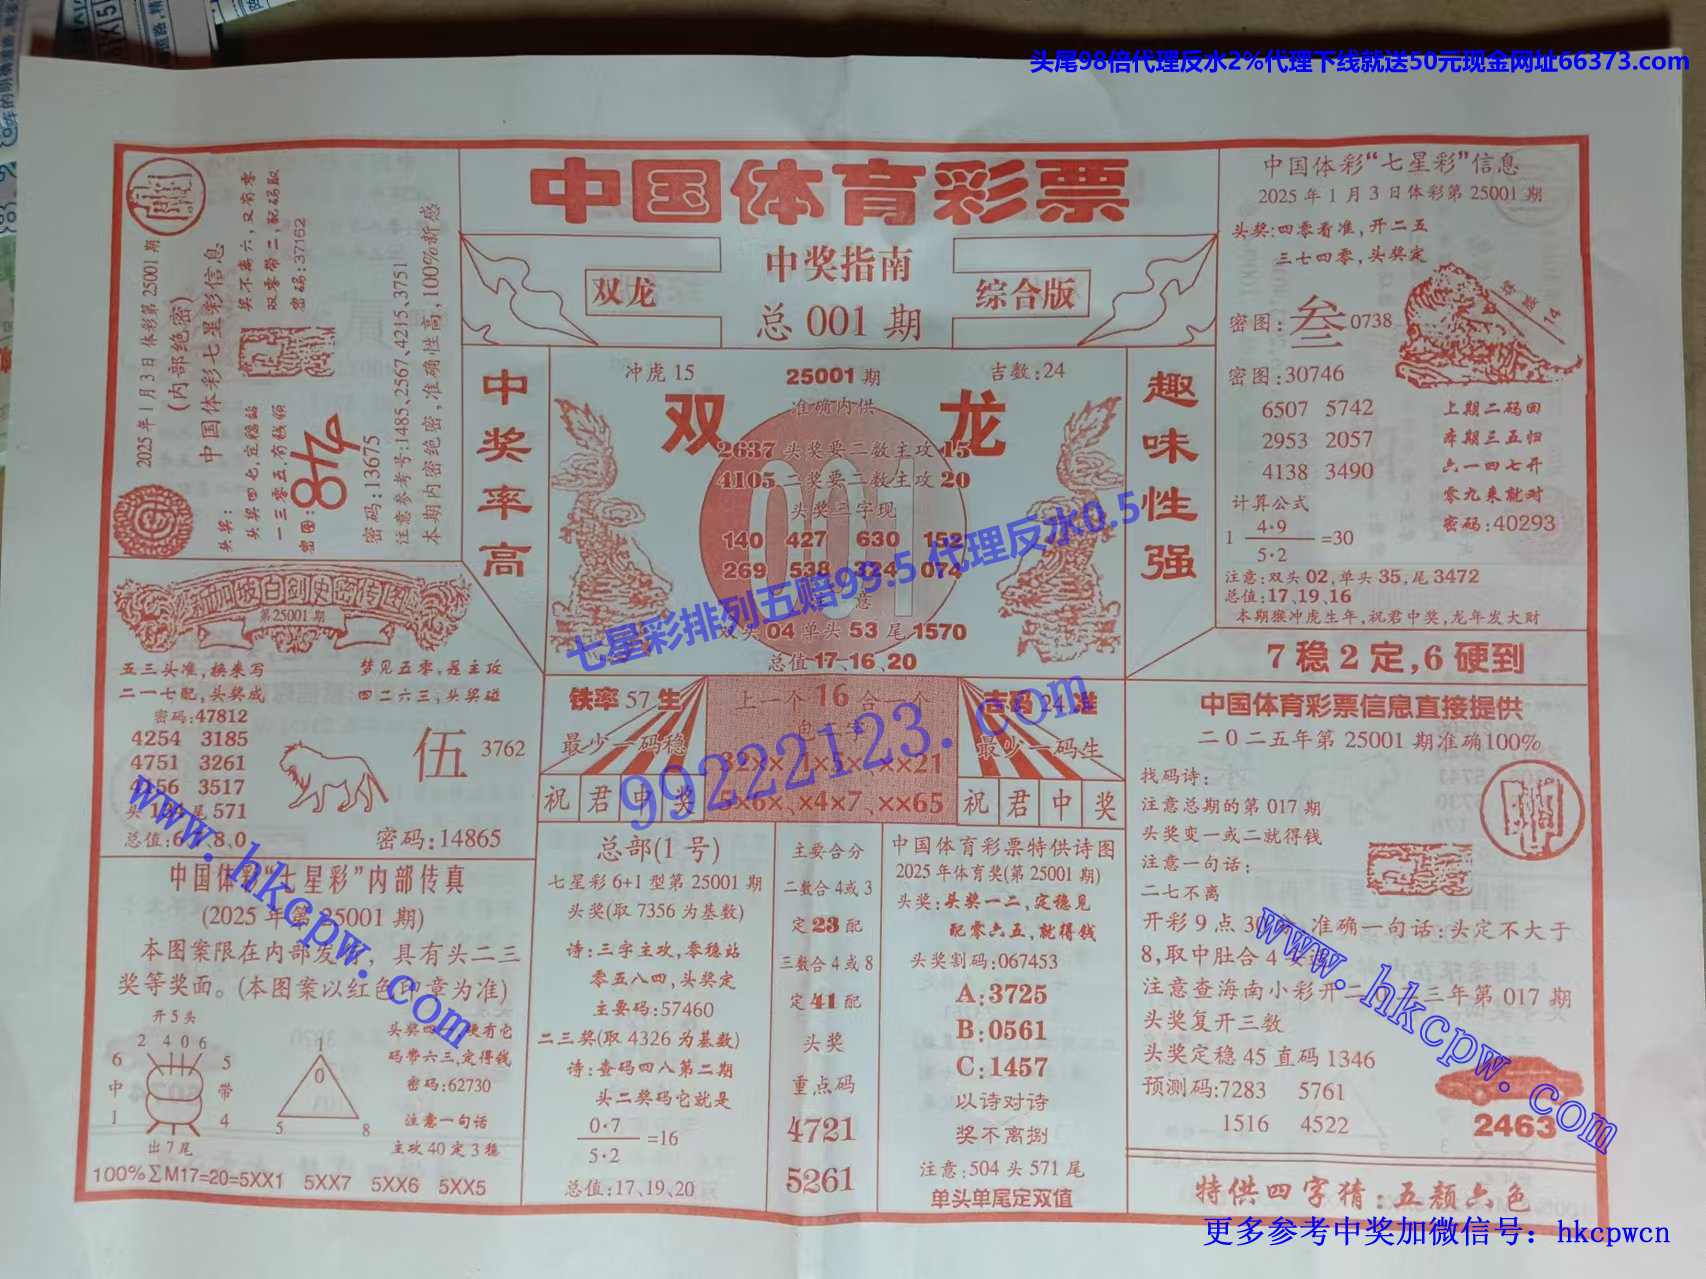 头尾98倍代理反水2%代理下线就送50元现金网址66373.com
中国体育彩票
中奖指南
双龙
综合版
总 001 期
2025年1月3日 体彩第 25001 期
(内部绝密)
中国体彩七星彩信息
头奖:
头奖四七,定稳鹤
一三零五,有钱领
奖不离六,又有零
双零带二,配码取
密码:37162
密图:
密码:13675
注意参考号:1485,2567,4215,3751
本期内密绝密,准确性高,100%新感
中国体彩“七星彩”信息
2025 年 1 月 3 日体彩第 25001 期
头奖:四零看准,开二五
三七四零,头奖定
密图:叁 0738
密图:30746
6507 5742
2953 2057
4138 3490
上期二码回
本期三五归
六一四七开
零九来就对
密码:40293
计算公式
1 4·9
5·2 =30
注意:双头 02,单头 35,尾 3472
总值:17、19、16
本期猴冲虎生年,祝君中奖,龙年发大财
中奖率高
趣味性强
冲虎 15
25001 期
吉数:24
双
准确内供
龙
2637 头奖要二数主攻 15
4105 二奖要二数主攻 20
头奖三字现
140 427 630 152
269 538 324 074
意
双头 04 单头 53 尾 1570
总值 17、16、20
七星彩排列五赔99.5 代理反水0.5
第25001期
五三头准,换来写
二一七配,头奖成
梦见五零,逗主攻
四二六三,头奖碰
密码:47812
4254 3185
4751 3261
4156 3517
尾 571
伍 3762
密码:14865
铁率 57 生
最少一码稳
上一个 16 合一个
32××、1×5×、××21
5×6×、×4×7、××65
吉码 24 准
最少一码生
祝君中奖
祝君中奖
99222123.com
7 稳 2 定,6 硬到
中国体育彩票信息直接提供
二0二五年第 25001 期准确100%
找码诗:
注意总期的第 017 期
头奖变一或二就得钱
注意一句话:
二七不离
开彩 9 点 30 准确一句话:头定不大于
8,取中肚合 4
注意查海南小彩开二 三年第 017 期
头奖复开三数
头奖定稳 45 直码 1346
预测码:7283 5761
1516 4522
2463
特供四字猜:五颜六色
中国体彩“七星彩”内部传真
(2025 年第 25001 期)
本图案限在内部发 ,具有头二三
奖等奖面。(本图案以红色印章为准)
开5头
2 4 0 6
6 5
中 带
1 4
出7尾
1
0
5 8
码带六三,定得钱
密码:62730
注意一句话
主攻 40 定 3 稳
100%∑M17=20=5XX1 5XX7 5XX6 5XX5
总部(1 号)
七星彩 6+1 型第 25001 期
头奖(取 7356 为基数)
诗:三字主攻,零稳站
零五八四,头奖定
主要码:57460
二三奖(取 4326 为基数)
诗:查码四八第二期
头二奖码它就是
0·7
5·2 =16
总值:17、19、20
主要合分
二数合 4或 3
定 23 配
三数合 4 或 8
定 41 配
头奖
重点码
4721
5261
中国体育彩票特供诗图
2025 年体育奖(第 25001 期)
头奖:头奖一二,定稳见
配零六五,就得钱
头奖割码:067453
A:3725
B:0561
C:1457
以诗对诗
奖不离捌
注意:504 头 571 尾
单头单尾定双值
www.hkcpw.com
www.hkcpw.com
更多参考中奖加微信号：hkcpwcn